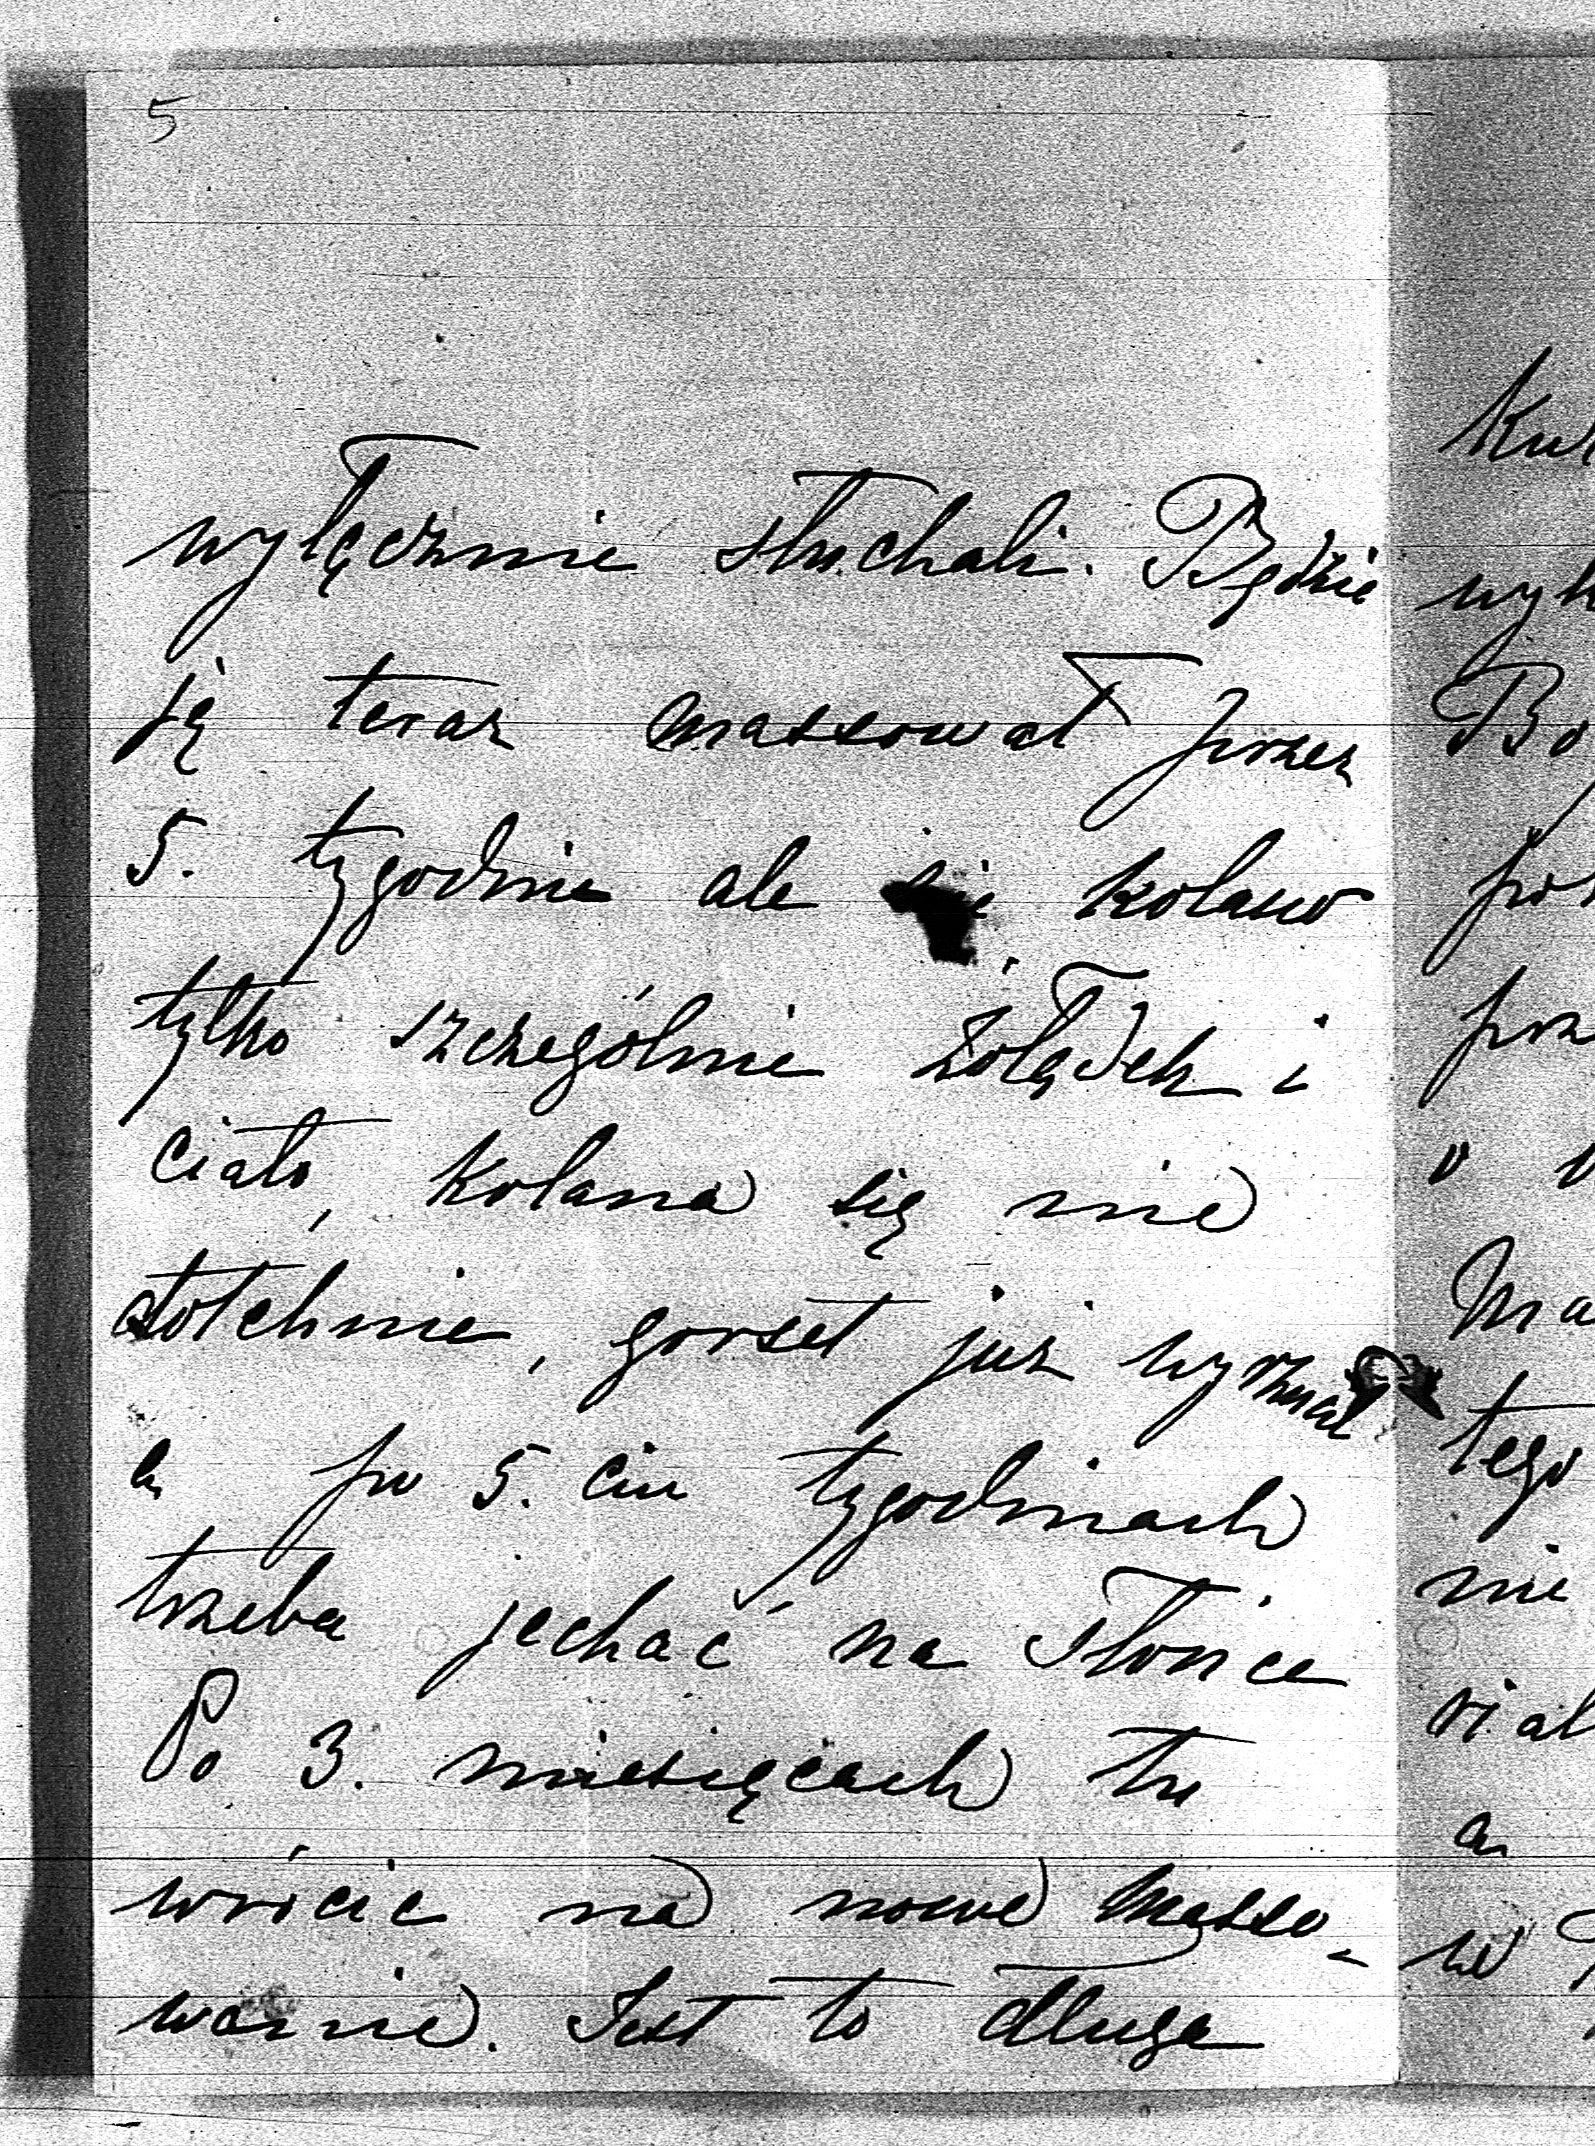 5
wyłącznie słuchali. Będzie
ją teraz massował przez
5. tygodnie ale nie kolano
tylko szczególnie żołądek i
ciało, kolana się nie
dotchnie, gorset już wyrzucał
a po 5. ciu tygodniach
trzeba jechać na słońce
Po 3. miesiącach tu
wrócić na nowe masso-
wanie. Jest to długa
Ku
wy
Bo
po
prz
Ma
tego
nie
a
w